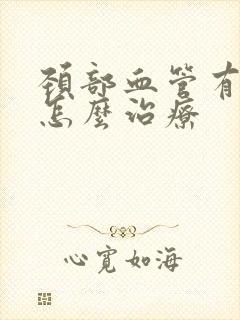 頚部血管有
怎麼治療
心寬如海